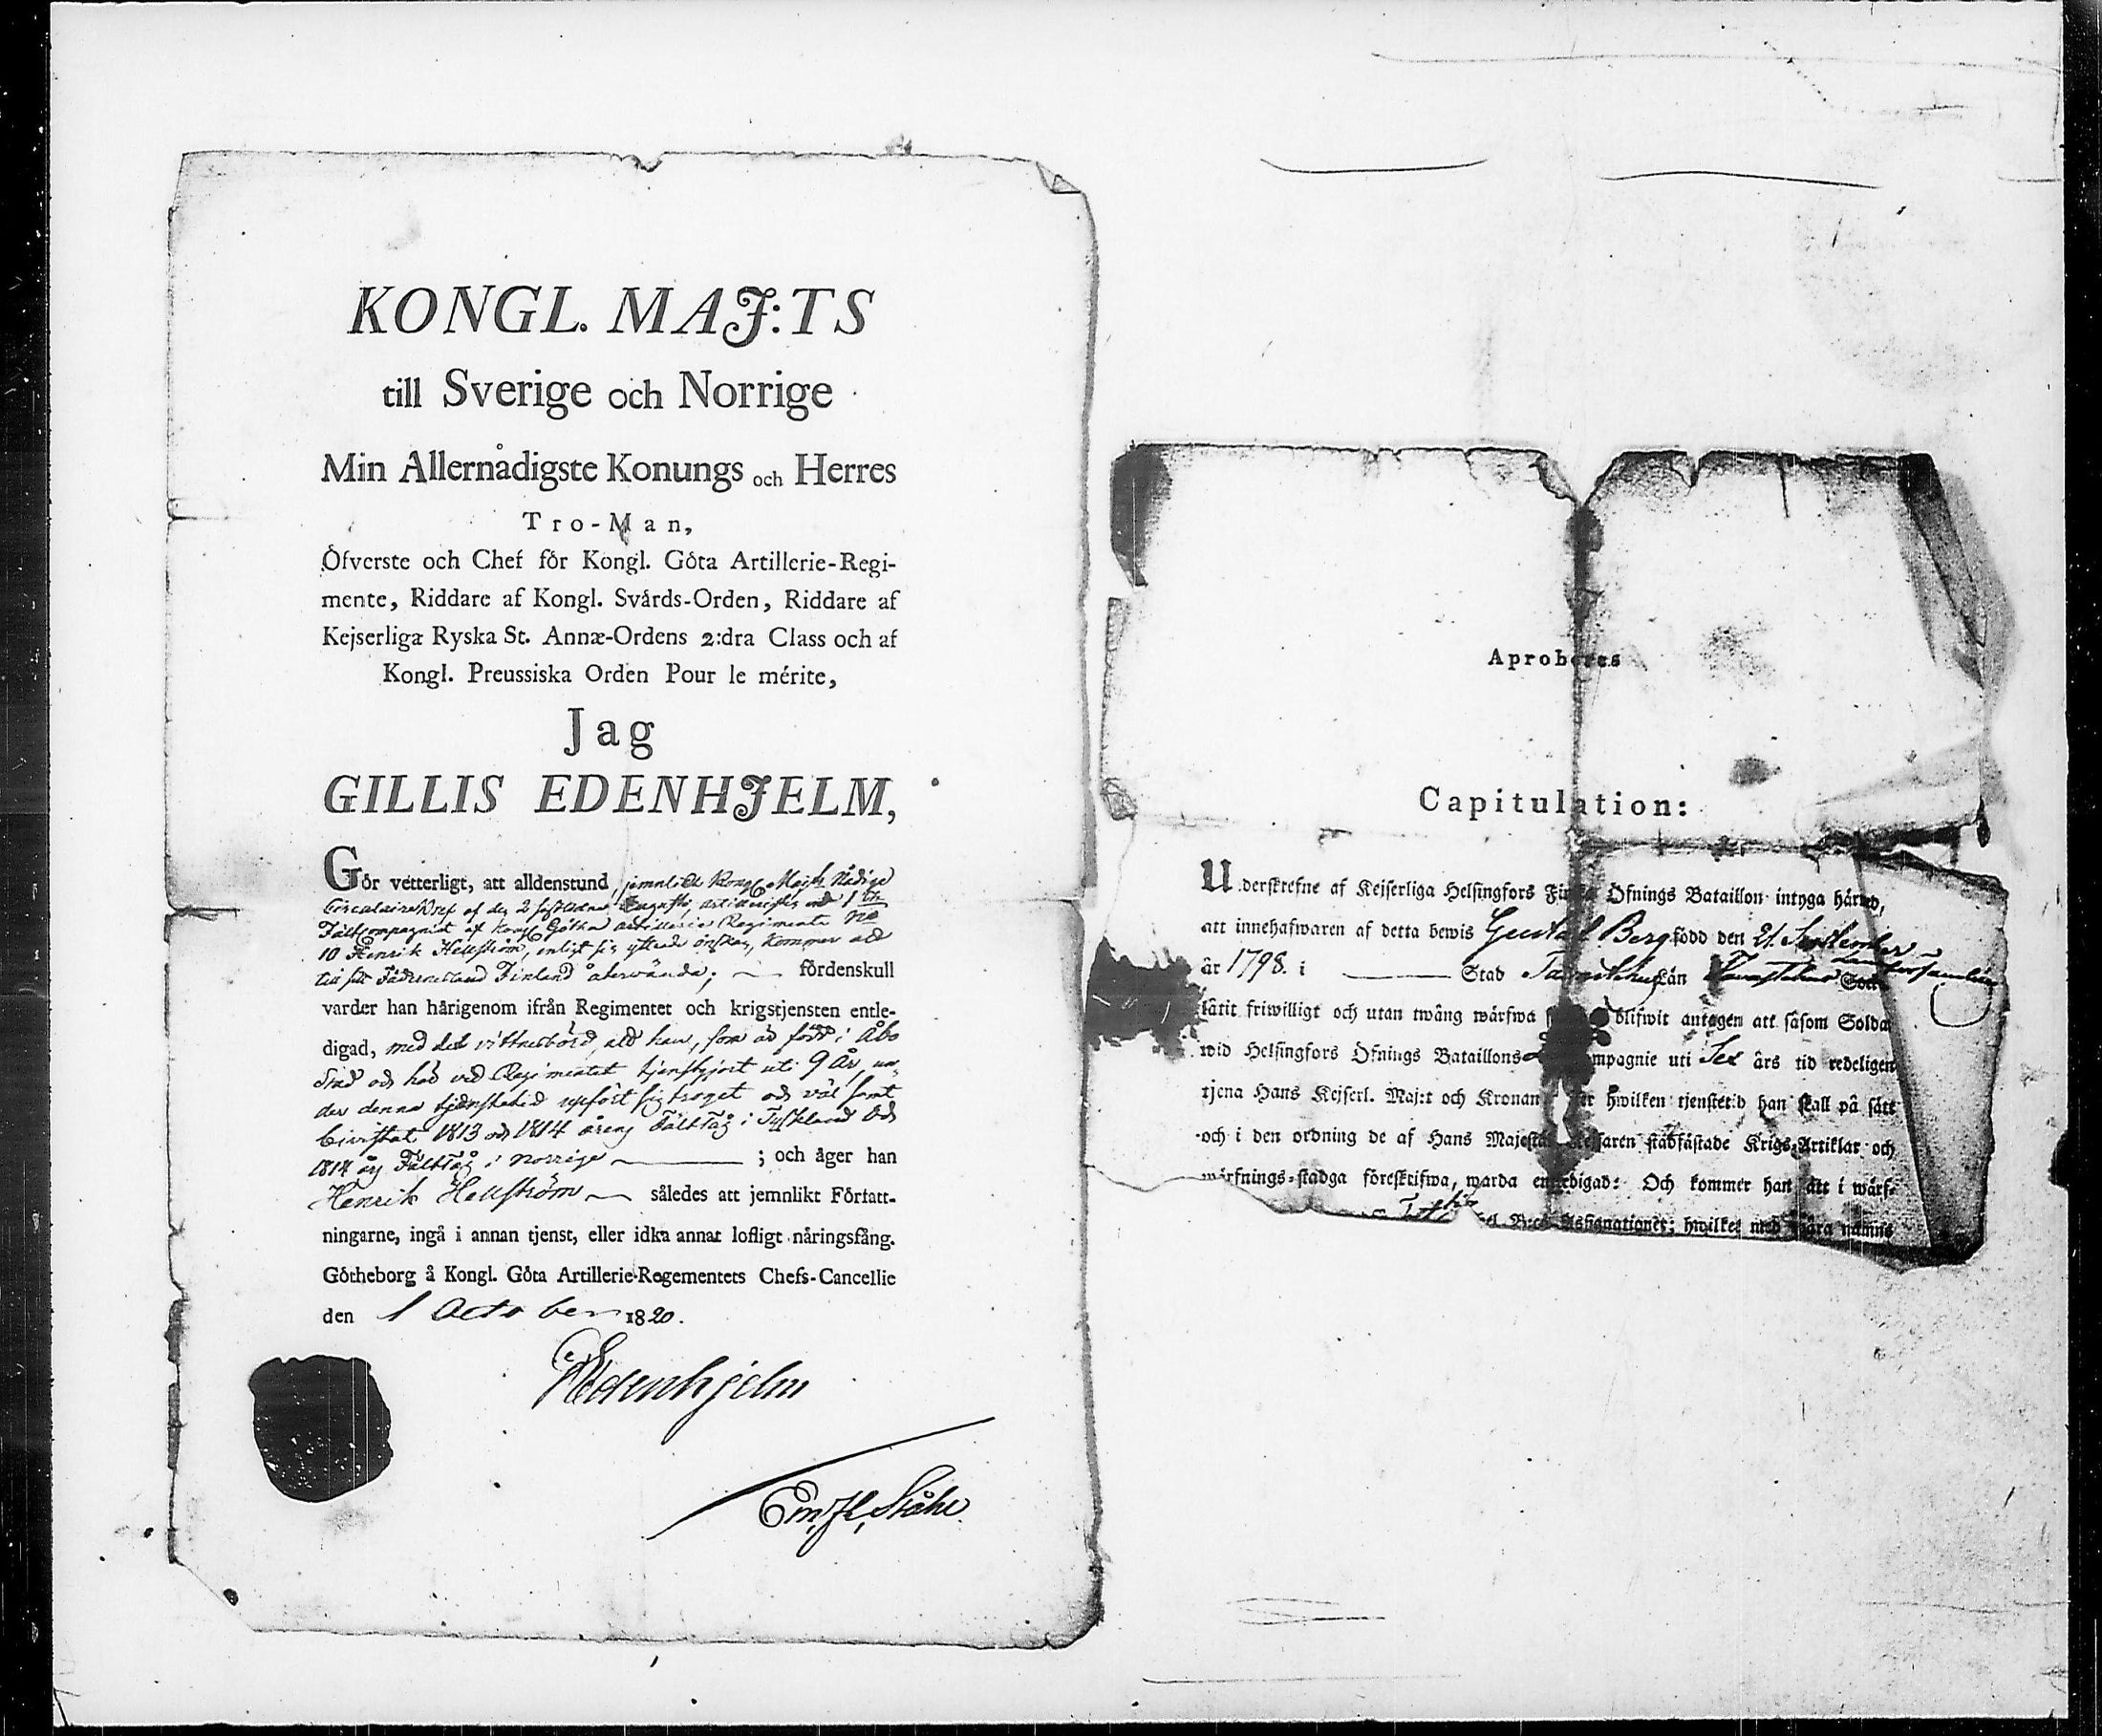 KONGL. MAJ:TS
till Sverige och Norrige
Min Allernådigste Konungs och Herres
Tro-Man,
Öfverste och Chef för Kongl. Göta Artillerie-Regi-
mente, Riddare af Kongl. Svårds-Orden, Riddare af
Kejserliga Ryska St. Annæ-Ordens 2:dra Class och af
Kongl. Preussiska Orden Pour le mérite,
Jag
GILLIS EDENHJELM,
Gör vetterligt, att alldenstund, jemnlikt Kongl Majts Nådige
Circulaire Bref af den 2 sistledne Augusti, artilleristen vid 1
Fältcompagniet af Kongl Götha Artillerie Regimente No
10 Henrik Hellström, enligt sin yttrade önskan, kommer att
till sitt Fädernesland Finland återvända; fördenskull
varder han hårigenom ifrån Regimentet och krigstjensten entle-
digad, med det vittnesbörd, att han, som är född i Åbo
Stad och har vid Regimentet tjenstgjort uti 9 År, un-
der denna tjenstetid uppfört sig troget och väl samt
bivistat 1813 och 1814 årens Fälttåg i Tyskland och
1814 års Fälttåg i Norrige ; och åger han
Henrik Hellström således att jemnlikt Författ-
ningarne, ingå i annan tjenst, eller idka annat lofligt nåringsfång.
Götheborg å Kongl. Göta Artillerie-Regementets Chefs-Cancellie
den 1 October 1820.
Edenhjelm
Em. Ståhle
Aproberes
Capitulation:
Underskrefne af Kejserliga Helsingfors Finska Öfnings Bataillon intyga härmed,
att innehafwaren af detta bewis Gustaf Berg född den 21 September
år 1798. i Stad Tavastehus Län Sockn
låtit friwilligt och utan twång wärfwa blifwit antagen att såsom Soldat
wid Helsingfors Öfnings Bataillons Compagnie uti Sex års tid redeligen
tjena Hans Kejserl. Maj:t och Kronan hwilken tjenstetid han skall på sätt
och i den ordning de af Hans Majestät Kejsaren stadfästade Krigs-Artiklar och
wärfnings-stadga föreskrifwa, warda entledigad: Och kommer han att i wärf-
B:co Assignationer; hwilket med wåra namns